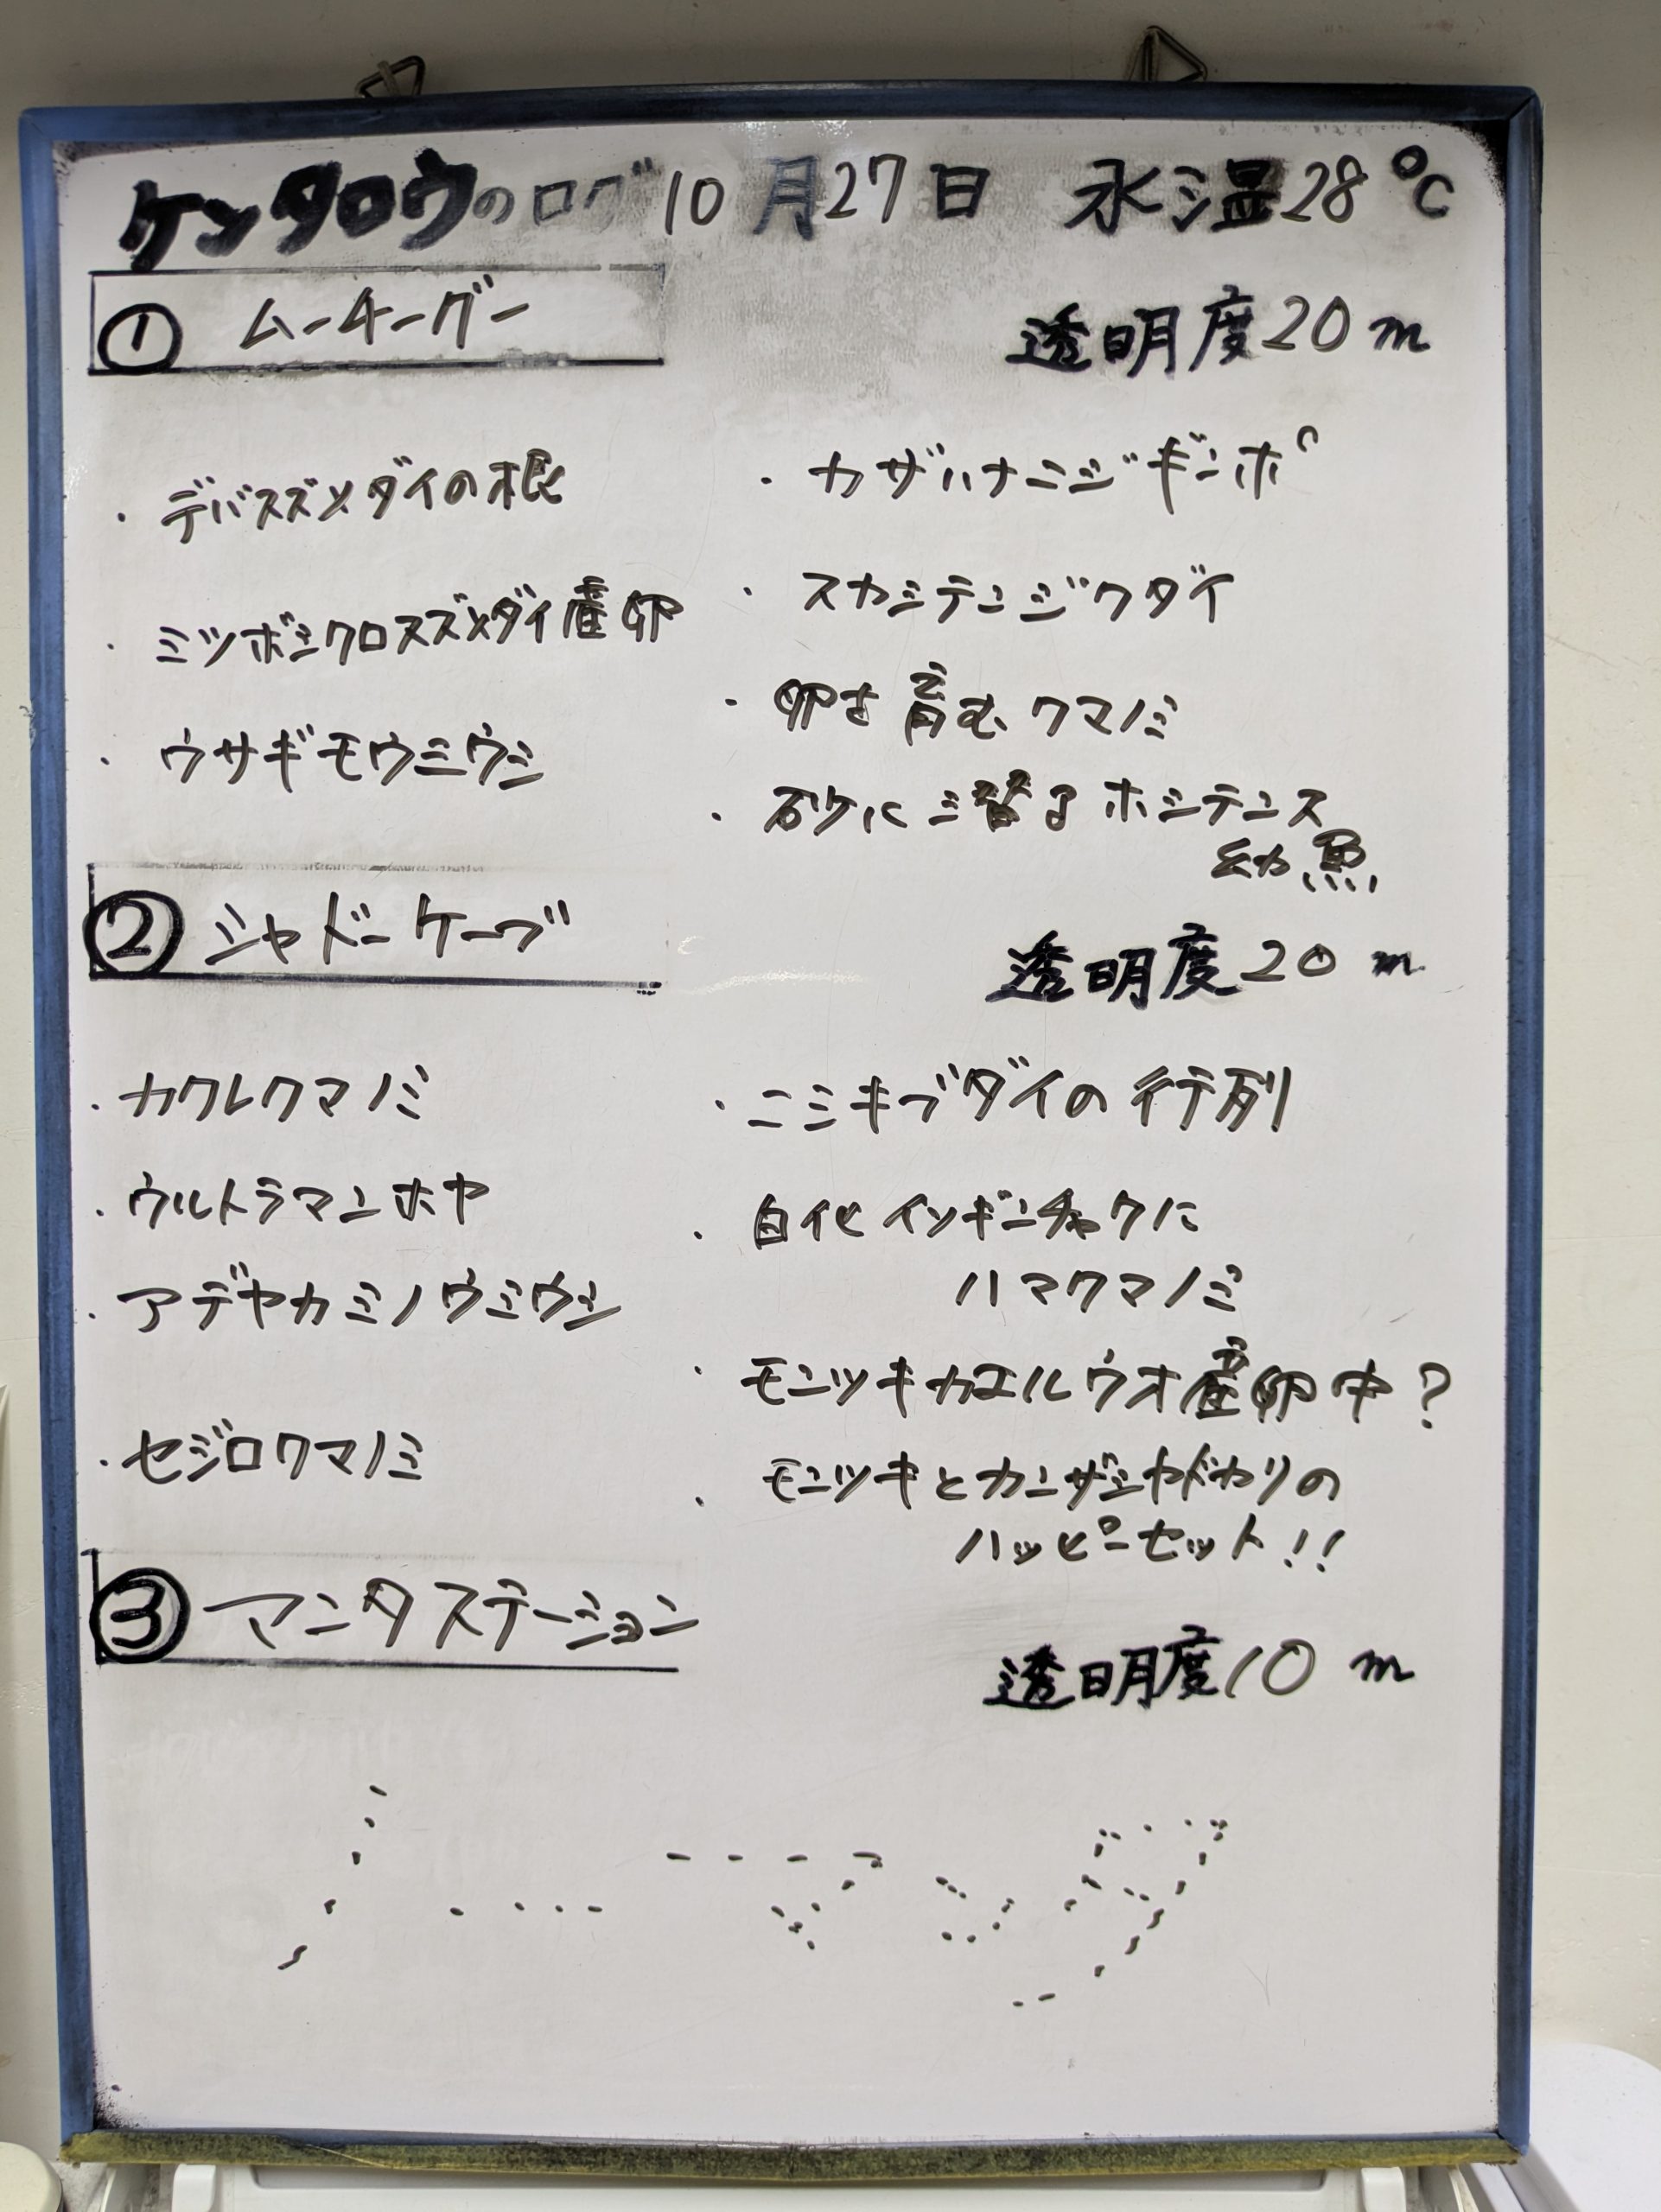 ケンタロウのログ 10月27日 水温28℃
① ムーチーグー
透明度20m
・デバスズメダイの根
・ミツボシクロスズメダイ産卵
・ウサギモウミウシ
・カザハナニジギンポ
・スカシテンジクダイ
・卵を育むクマノミ
・砂に潜るホシテンス
幼魚
② シャドーケーブ
透明度20m
・カクレクマノミ
・ウルトラマンホヤ
・アデヤカミノウミウシ
・セジロクマノミ
・ニシキブダイの行列
・白化イソギンチャクに
ハマクマノミ
・モンツキカエルウオ産卵中?
・モンツキとカンザシヤドカリの
ハッピーセット!!
③ マンタステーション
透明度10m